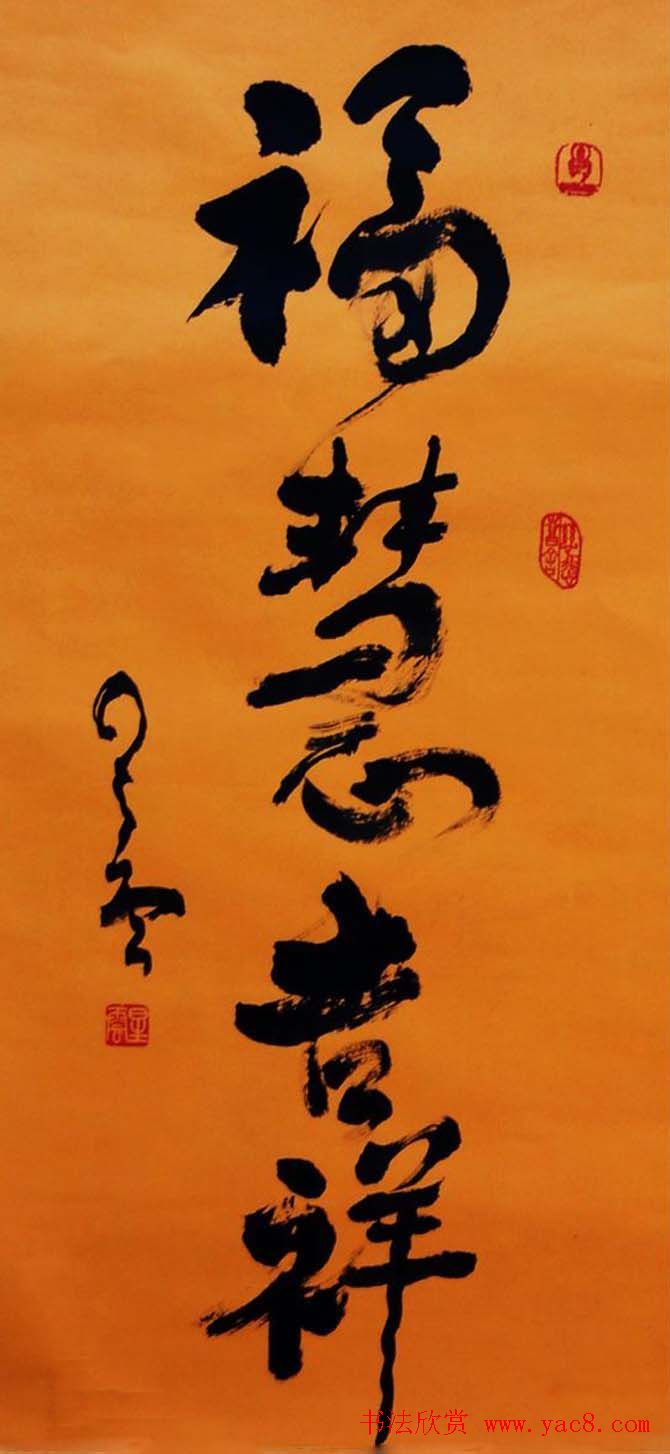 福慧吉祥
星雲
星雲
书法欣赏 www.yac8.com